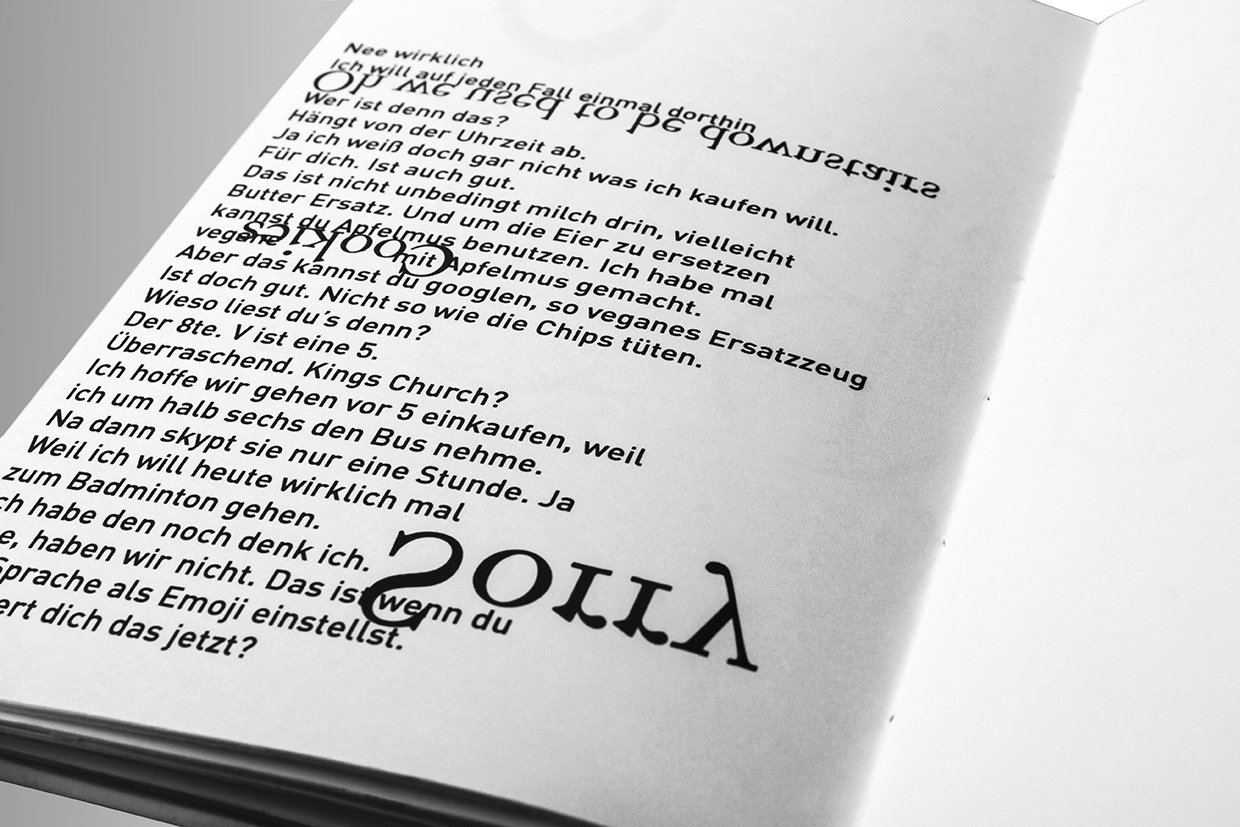 Nee wirklich
Ich will auf jeden Fall einmal dorthin
Oh we used to be downstairs
Wer ist denn das?
Hängt von der Uhrzeit ab.
Ja ich weiß doch gar nicht was ich kaufen will.
Für dich. Ist auch gut.
Das ist nicht unbedingt milch drin, vielleicht
Butter Ersatz. Und um die Eier zu ersetzen
kannst du Apfelmus benutzen. Ich habe mal
vegane Cookies mit Apfelmus gemacht.
Aber das kannst du googlen, so veganes Ersatzzeug
Ist doch gut. Nicht so wie die Chips tüten.
Wieso liest du´s denn?
Der 8te. V ist eine 5.
Überraschend. Kings Church?
Ich hoffe wir gehen vor 5 einkaufen, weil
ich um halb sechs den Bus nehme.
Na dann skypt sie nur eine Stunde. Ja
Weil ich will heute wirklich mal
zum Badminton gehen.
ch habe den noch denk ich.
e, haben wir nicht. Das ist wenn du
Sorry
Sprache als Emoji einstellst.
ert dich das jetzt?